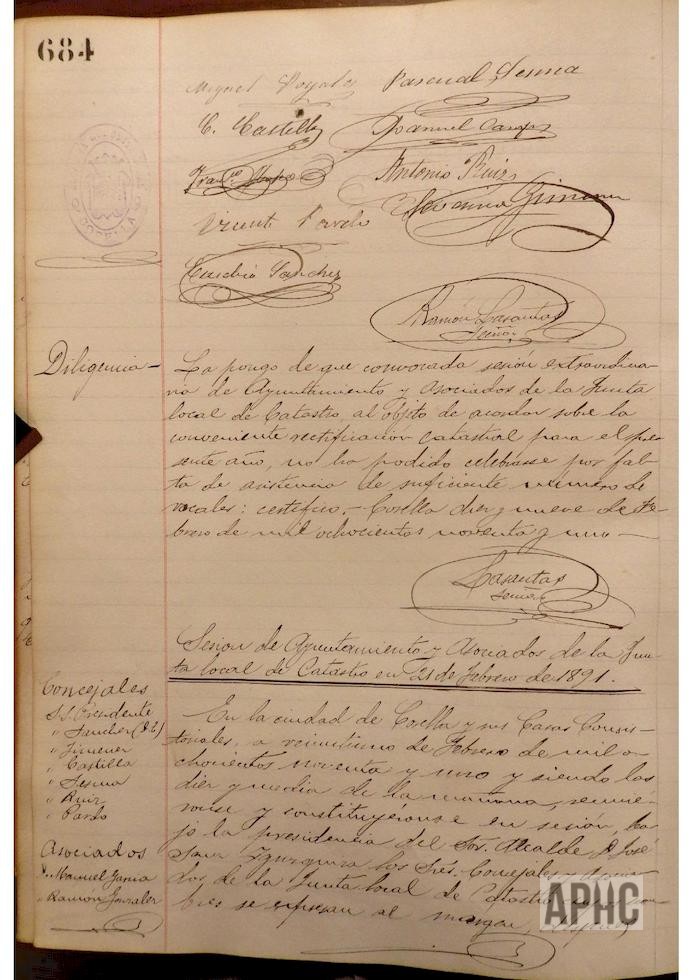 684
Miguel Poyales Pascual Sesma
C. Castilla Manuel Campos
Antonio Ruiz
Vicente Pardo Severino Gimenez
Eusebio Sanchez
Ramón Lasantas
Diligencia— La pongo de que convocada sesión extraordina-
ria de Ayuntamiento y Asociados de la Junta
local de Catastro, al objeto de acordar sobre la
conveniente rectificacion catastral para el pre-
sente año, no ha podido celebrarse por fal-
ta de asistencia de suficiente número de
vocales: certifico.— Corella diez y nueve de Fe-
brero de mil ochocientos noventa y uno—
Lasantas
Sesion de Ayuntamiento y Asociados de la Jun-
ta local de Catastro en 21 de Febrero de 1891.
Concejales
S.S. Presidente
" Sanchez (D. E.)
" Jimenez
" Castilla
" Sesma
" Ruiz
" Pardo
Asociados
Manuel Garcia
Ramon Gonzalez
En la ciudad de Corella y sus Casas Consis-
toriales, a veintiuno de Febrero de mil o-
chocientos noventa y uno y siendo las
diez y media de la mañana, reunié-
ronse y constituyéronse en sesión, ba-
jo la presidencia del Sor. Alcalde D. José
los Sres. Concejales y Asocia-
dos de la Junta local de Catastro
bres se espresan al margen,
APHC